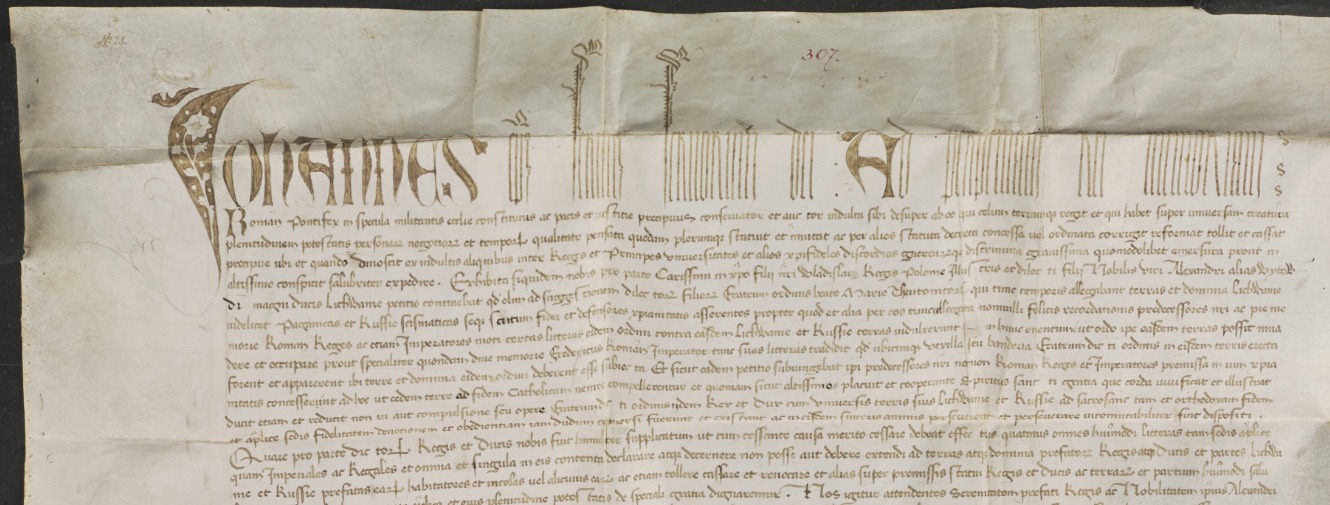 No 71.
307.
Johannes eps servus servorum dei Ad perpetuam rei memoriam
Roman Pontifex in specula militantis ecclie constitutus ac pacis et iusticie precipuus conservator et auc tor indulta sibi desuper ab eo qui celum terramqz regit et qui habet super universam creaturam
plenitudinem potestatis personarum negotiorum et temporum qualitate pensata quedam plerumqz statuit et mutat ac per alios statuta decreta concessa vel ordinata corrigit reformat tollit et cassat
precipue ubi et quando dinoscit ex indultis aliquibus inter Reges et Principes universitates et alios xpifideles discordias guerrarumqz discrimina gravissima quomodolibet emersura prout in
altissimo conspicit salubriter expedire. Exhibita siquidem nobis pro parte Carissimi in xpo filii nri Wladislai Regis Polonie Illustris et dilecti filii Nobilis viri Alexandri alias
magni ducis Lithwanie petitio continebat qd olim ad suggestionem dilectorum filiorum fratrum ordinis beate Marie Theutonicorum qui tunc temporis allegabant terras et dominia Lithwanie
videlicet Paganicas et Russie scismaticas seqz scutum fidei et defensores xpianitatis asserentes propter quod et alia per eos tunc allegata nonnulli felicis recordationis predecessores nri ac pie me
morie Romani Reges ac etiam Imperatores moti certas litteras eidem ordini contra easdem Lithwanie et Russie terras indulserunt in hunc eventum ut ordo ipe easdem terras possit inva
dere et occupare prout specialiter quondam dive memorie Fredericus Roman Imperator tunc suas litteras tradidit qd ubicumqz vexilla seu banderia fratrum dicti ordinis in eisdem terris erecta
forent et apparerent ibi terre et dominia eidem ordini deberent esse subiecta Et sicut eadem petitio subiungebat ipi predecessores nri necnon Romani Reges et Imperatores premissa in vim xpia
nitatis concesserunt ad hoc ut eedem terre ad fidem Catholicam venire compellerentur et quoniam sicut altissimo placuit et cooperante Spiritus sancti gratia que corda vivificat et illustrat
ordinis iidem Rex et Dux cum universis terris suis Lithwanie et Russie ad sacrosanctam et orthodoxam fidem
ducti etiam et reducti non vi aut compulsione seu opere fratrum
et aplice sedis fidelitatem devotionem et obedientiam iam dudum conversi fuerunt et existunt ac in eisdem sinceris animis perseverent et perseverare incommutabiliter sint dispositi.
Quare pro parte dictorum Regis et Ducis nobis fuit humiliter supplicatum ut cum cessante causa merito cessare debeat effectus quatinus omnes huiusmodi litteras tam sedis aplice
quam Imperiales ac Regales et omnia et singula in eis contenta declarare atqz decernere non posse aut debere extendi ad terras atqz dominia prefatorum Regis atqz Ducis et partes Lithwa
nie et Russie prefatas earum habitatores et incolas vel alicuius earum ac etiam tollere cassare et revocare et alias super premissis statui Regis et Ducis ac terrarum et partium huiusmodi salu
et eius plenitudine potestatis de speciali gratia dignaremur. Nos igitur attendentes Serenitatem prefati Regis ac Nobilitatem ipius Alexandri